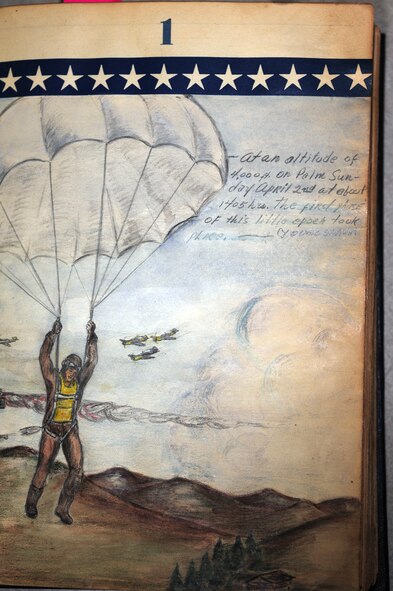 1
- At an altitude of
4,000 ft. on Palm Sun-
day April 2nd at about
1405 hrs. The first phase
of this little epoch took
place.